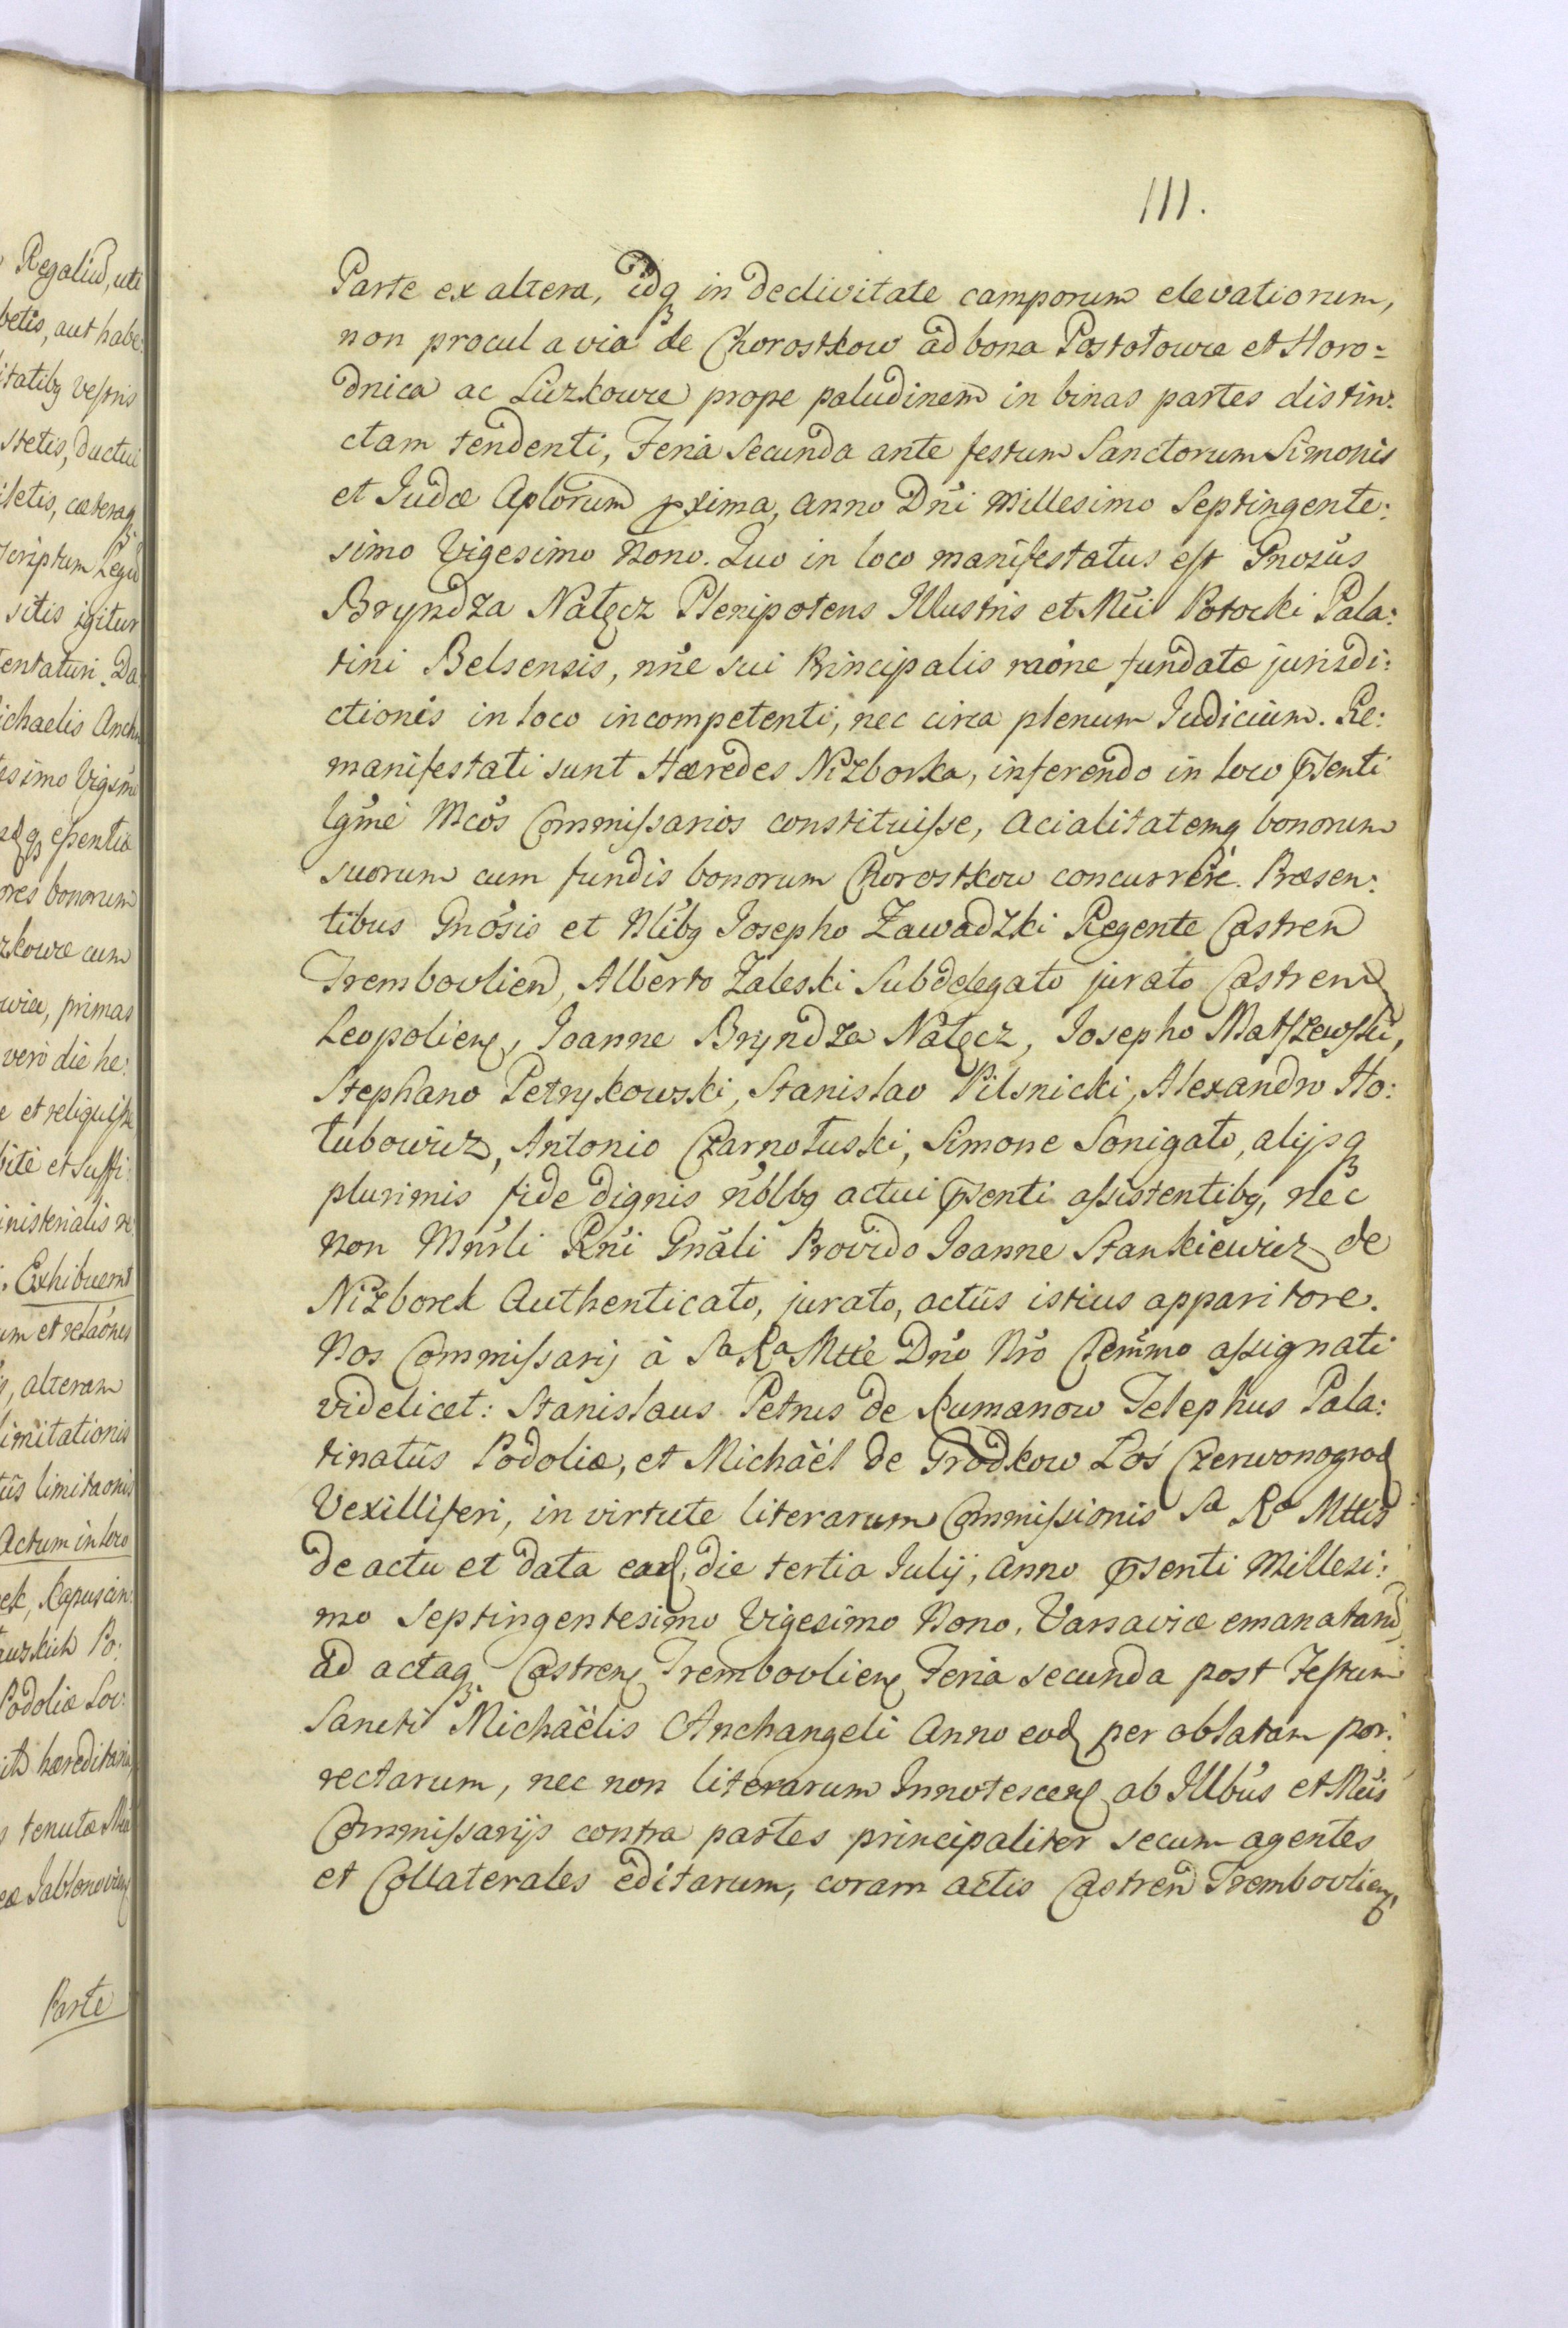 111.
Parte ex altera, idq in declivitate camporum elevatiorum,
non procul a via de Chorostkow ad bona Postołowce et Horo=
dnica ac Liczkowce prope paludinem in binas partes distin:
ctam tendenti, Feria Secunda ante festum Sanctorum Simonis
et Judæ Aplorum pxima, anno Dni Millesimo Septingente:
simo Vigesimo Nono. Quo in loco manifestatus est Gnosus
Bryndza Nałęcz Plenipotens Illustris et Mci Potocki Pala:
tini Belsensis, nne sui Principalis raone fundatæ jurisdi:
ctionis in loco incompetenti, nec circa plenum Judicium. Re:
manifestati sunt Hæredes Niżborka, inferendo in loco psenti
lgme Mcos Commissarios constituisse, acialitatemq bonorum
suorum cum fundis bonorum Chorostkow concurrere. Præsen:
tibus Gnosis et Nlibq Josepho Zawadzki Regente Castren
Trembovlien, Alberto Zaleski Subdelegato jurato Castren
Leopolien, Joanne Bryndza Nałęcz, Josepho Matszewski,
Stephano Petrykowski, Stanislao Pilsnicki, Alexandro Ho:
łubowicz, Antonio Czarnołuski, Simone Sonigato, alijsq
plurimis fide dignis noblbq actui psenti assistentibq, nec
non Mnrli Rni Gnali Provido Joanne Stankiewicz de
Niżborek Authenticato, jurato, actûs istius apparitore.
Nos Commissarij à Sa Ra Mtte Dno Nro Clemmo assignati
videlicet: Stanislaus Petrus de Kumanow Telephus Pala:
tinatûs Podoliæ, et Michaël de Grodkow Łoś Czerwonogrod
Vexilliferi, in virtute literarum Commissionis Sa Ra Mttis
de actu et data ead, die tertia Julij, anno psenti Millesi:
mo Septingentesimo Vigesimo Nono, Varsaviæ emanatarum,
ad actaq Castren Trembovlien Feria secunda post Festum
Sancti Michaëlis Archangeli Anno eod per oblatam por:
rectarum, nec non literarum Innotescen ab Illbus et Mcis
Commissarijs contra partes principaliter secum agentes
et Collaterales editarum, coram actis Castren Trembovlien
Regaliu, uti
betis, aut habe:
itatibq vestris
stetis, ductui
iletis, cæteraq
scriptum Legu
sitis igitur
entaturi. Da
ichaelis Arch
esimo Vigesim
essentia
ores bonorum
zkowce cum
primas
vero die he:
e et reliquis
bite et suffi:
inisterialis re
Exhibuerunt
um et relaones
s, alteram
limitationis
ûs limitaonis
Actum in loco
ek, Kapuscin:
Po:
Podoliæ Lov:
hæreditaria
tenutæ
Jablonovien
Parte